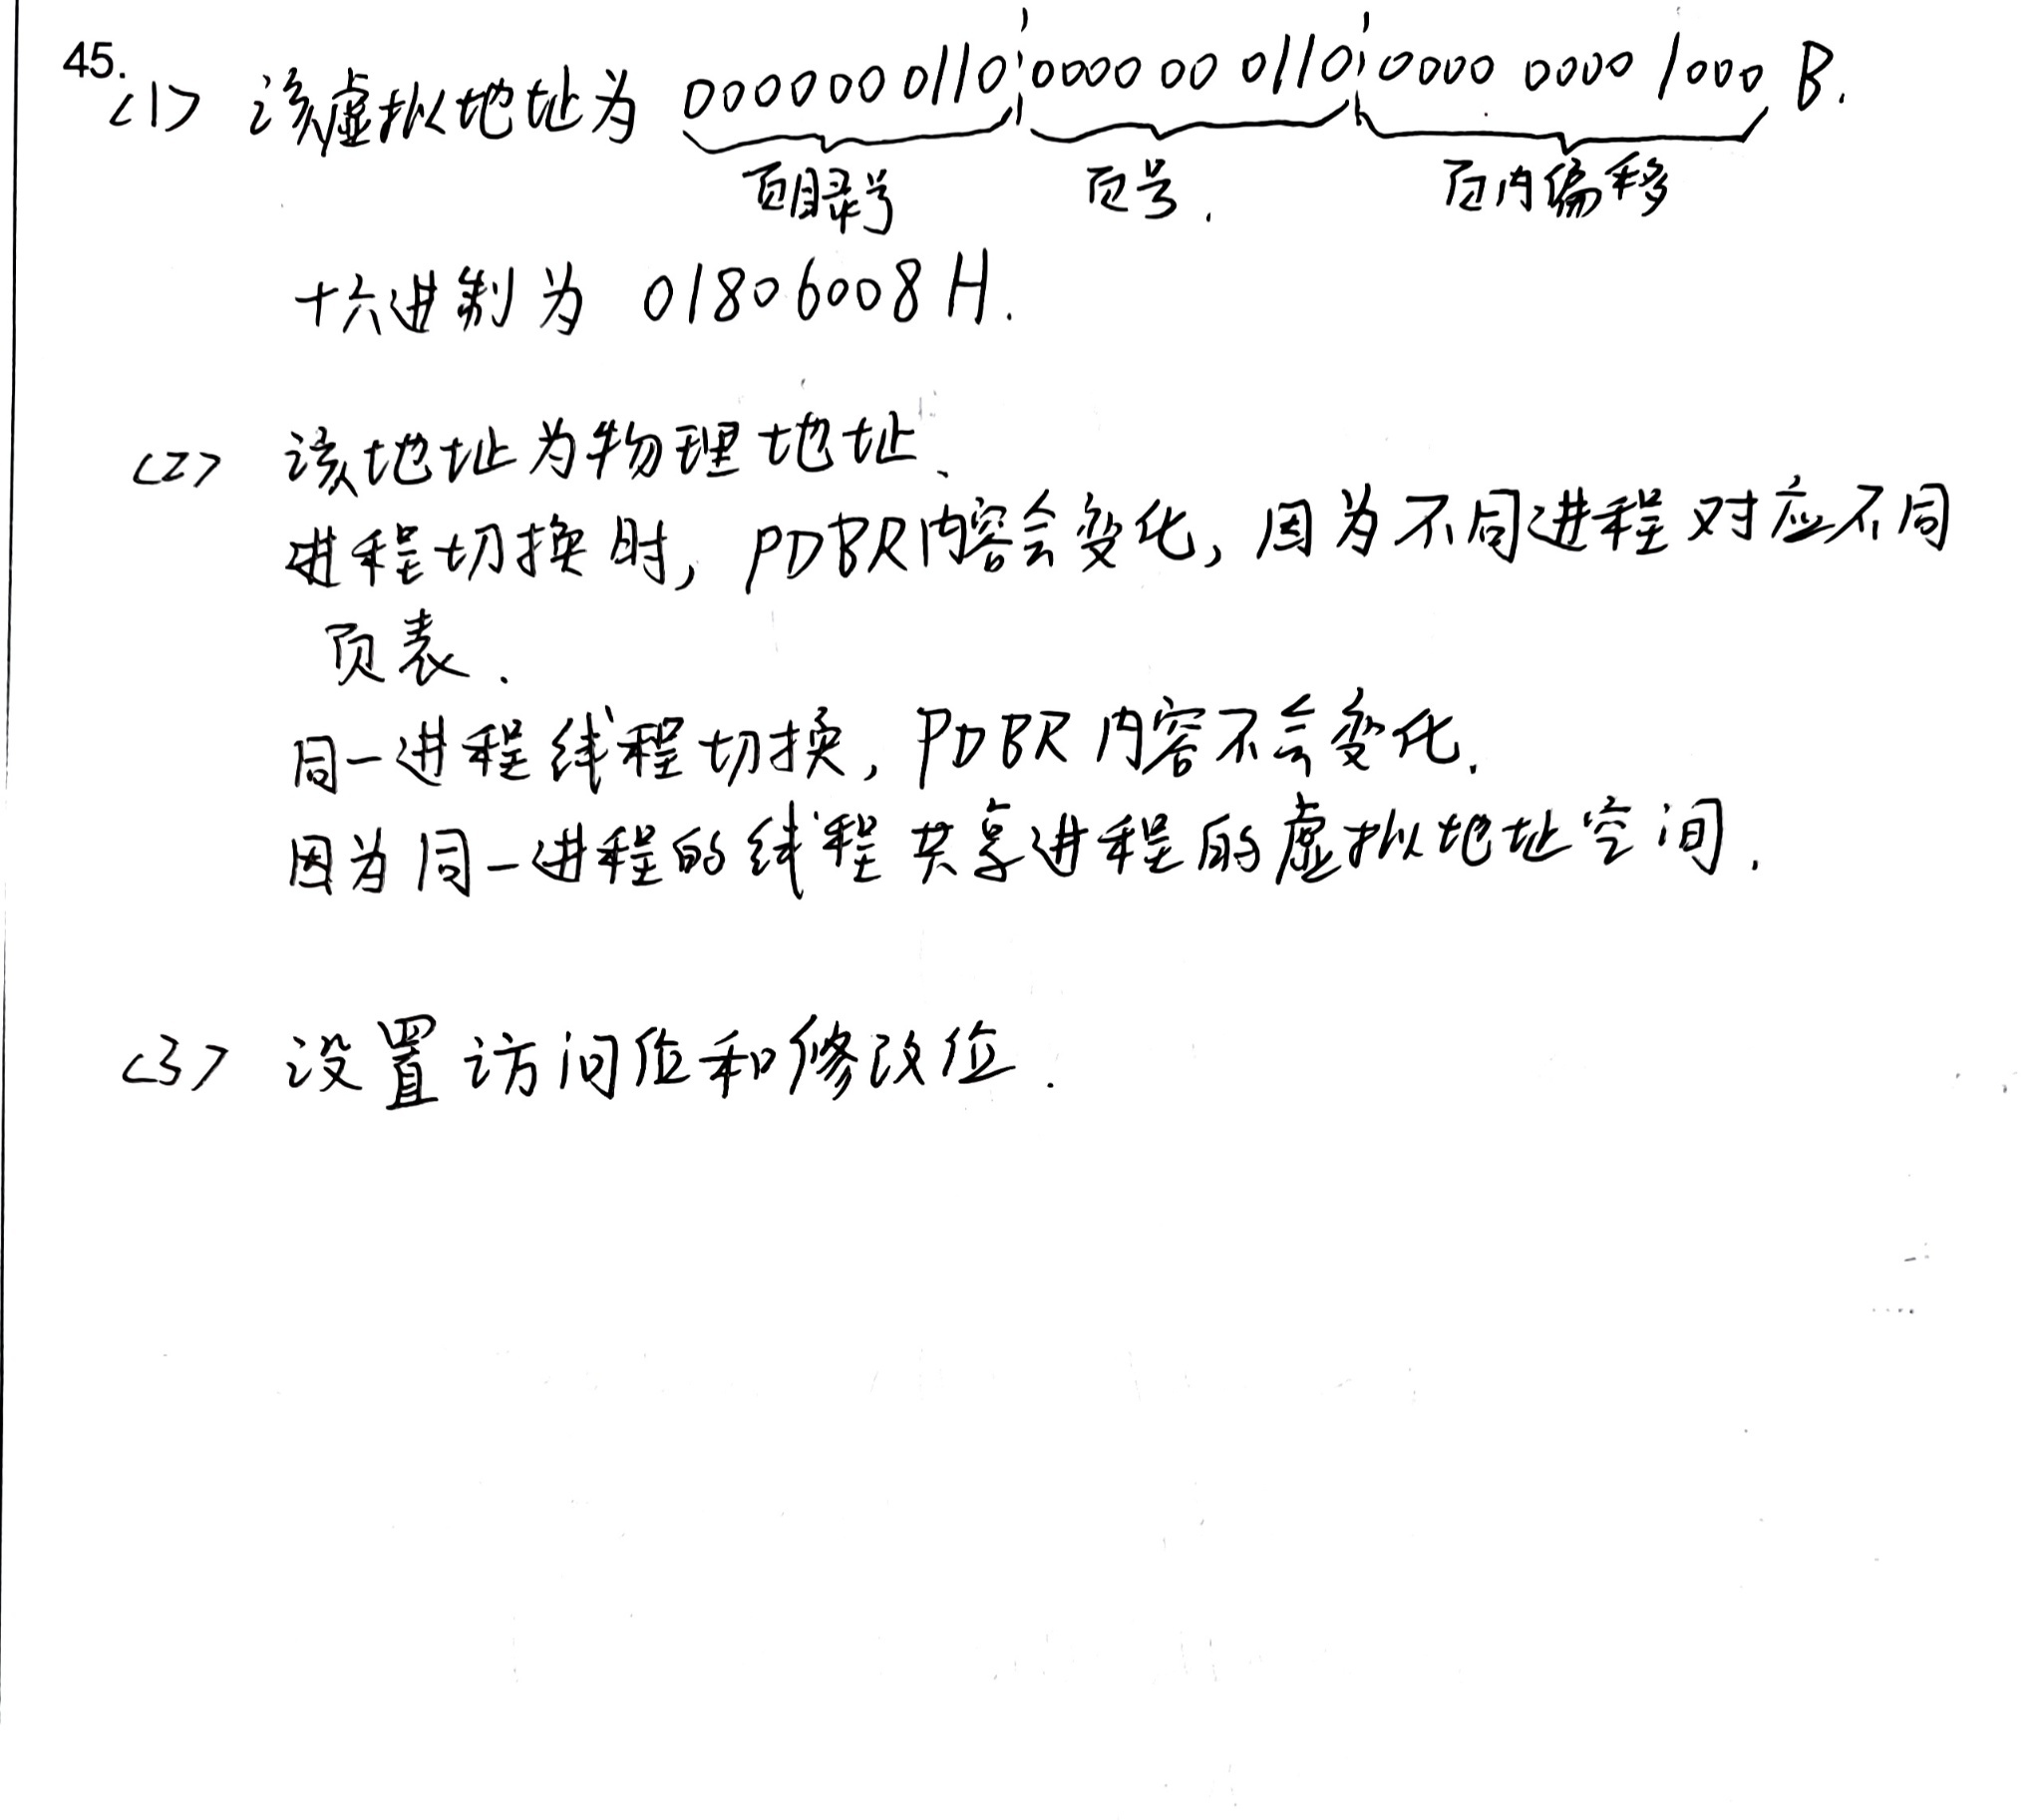 45.
(1) 该虚拟地址为 0000000110 0000000110 0000 0000 1000 B.
页目录号 页号. 页内偏移
十六进制为 01806008H.
(2) 该地址为物理地址.
进程切换时, PDBR内容会变化, 因为不同进程对应不同
页表.
同一进程线程切换, PDBR内容不会变化.
因为同一进程的线程共享进程的虚拟地址空间.
(3) 设置访问位和修改位.